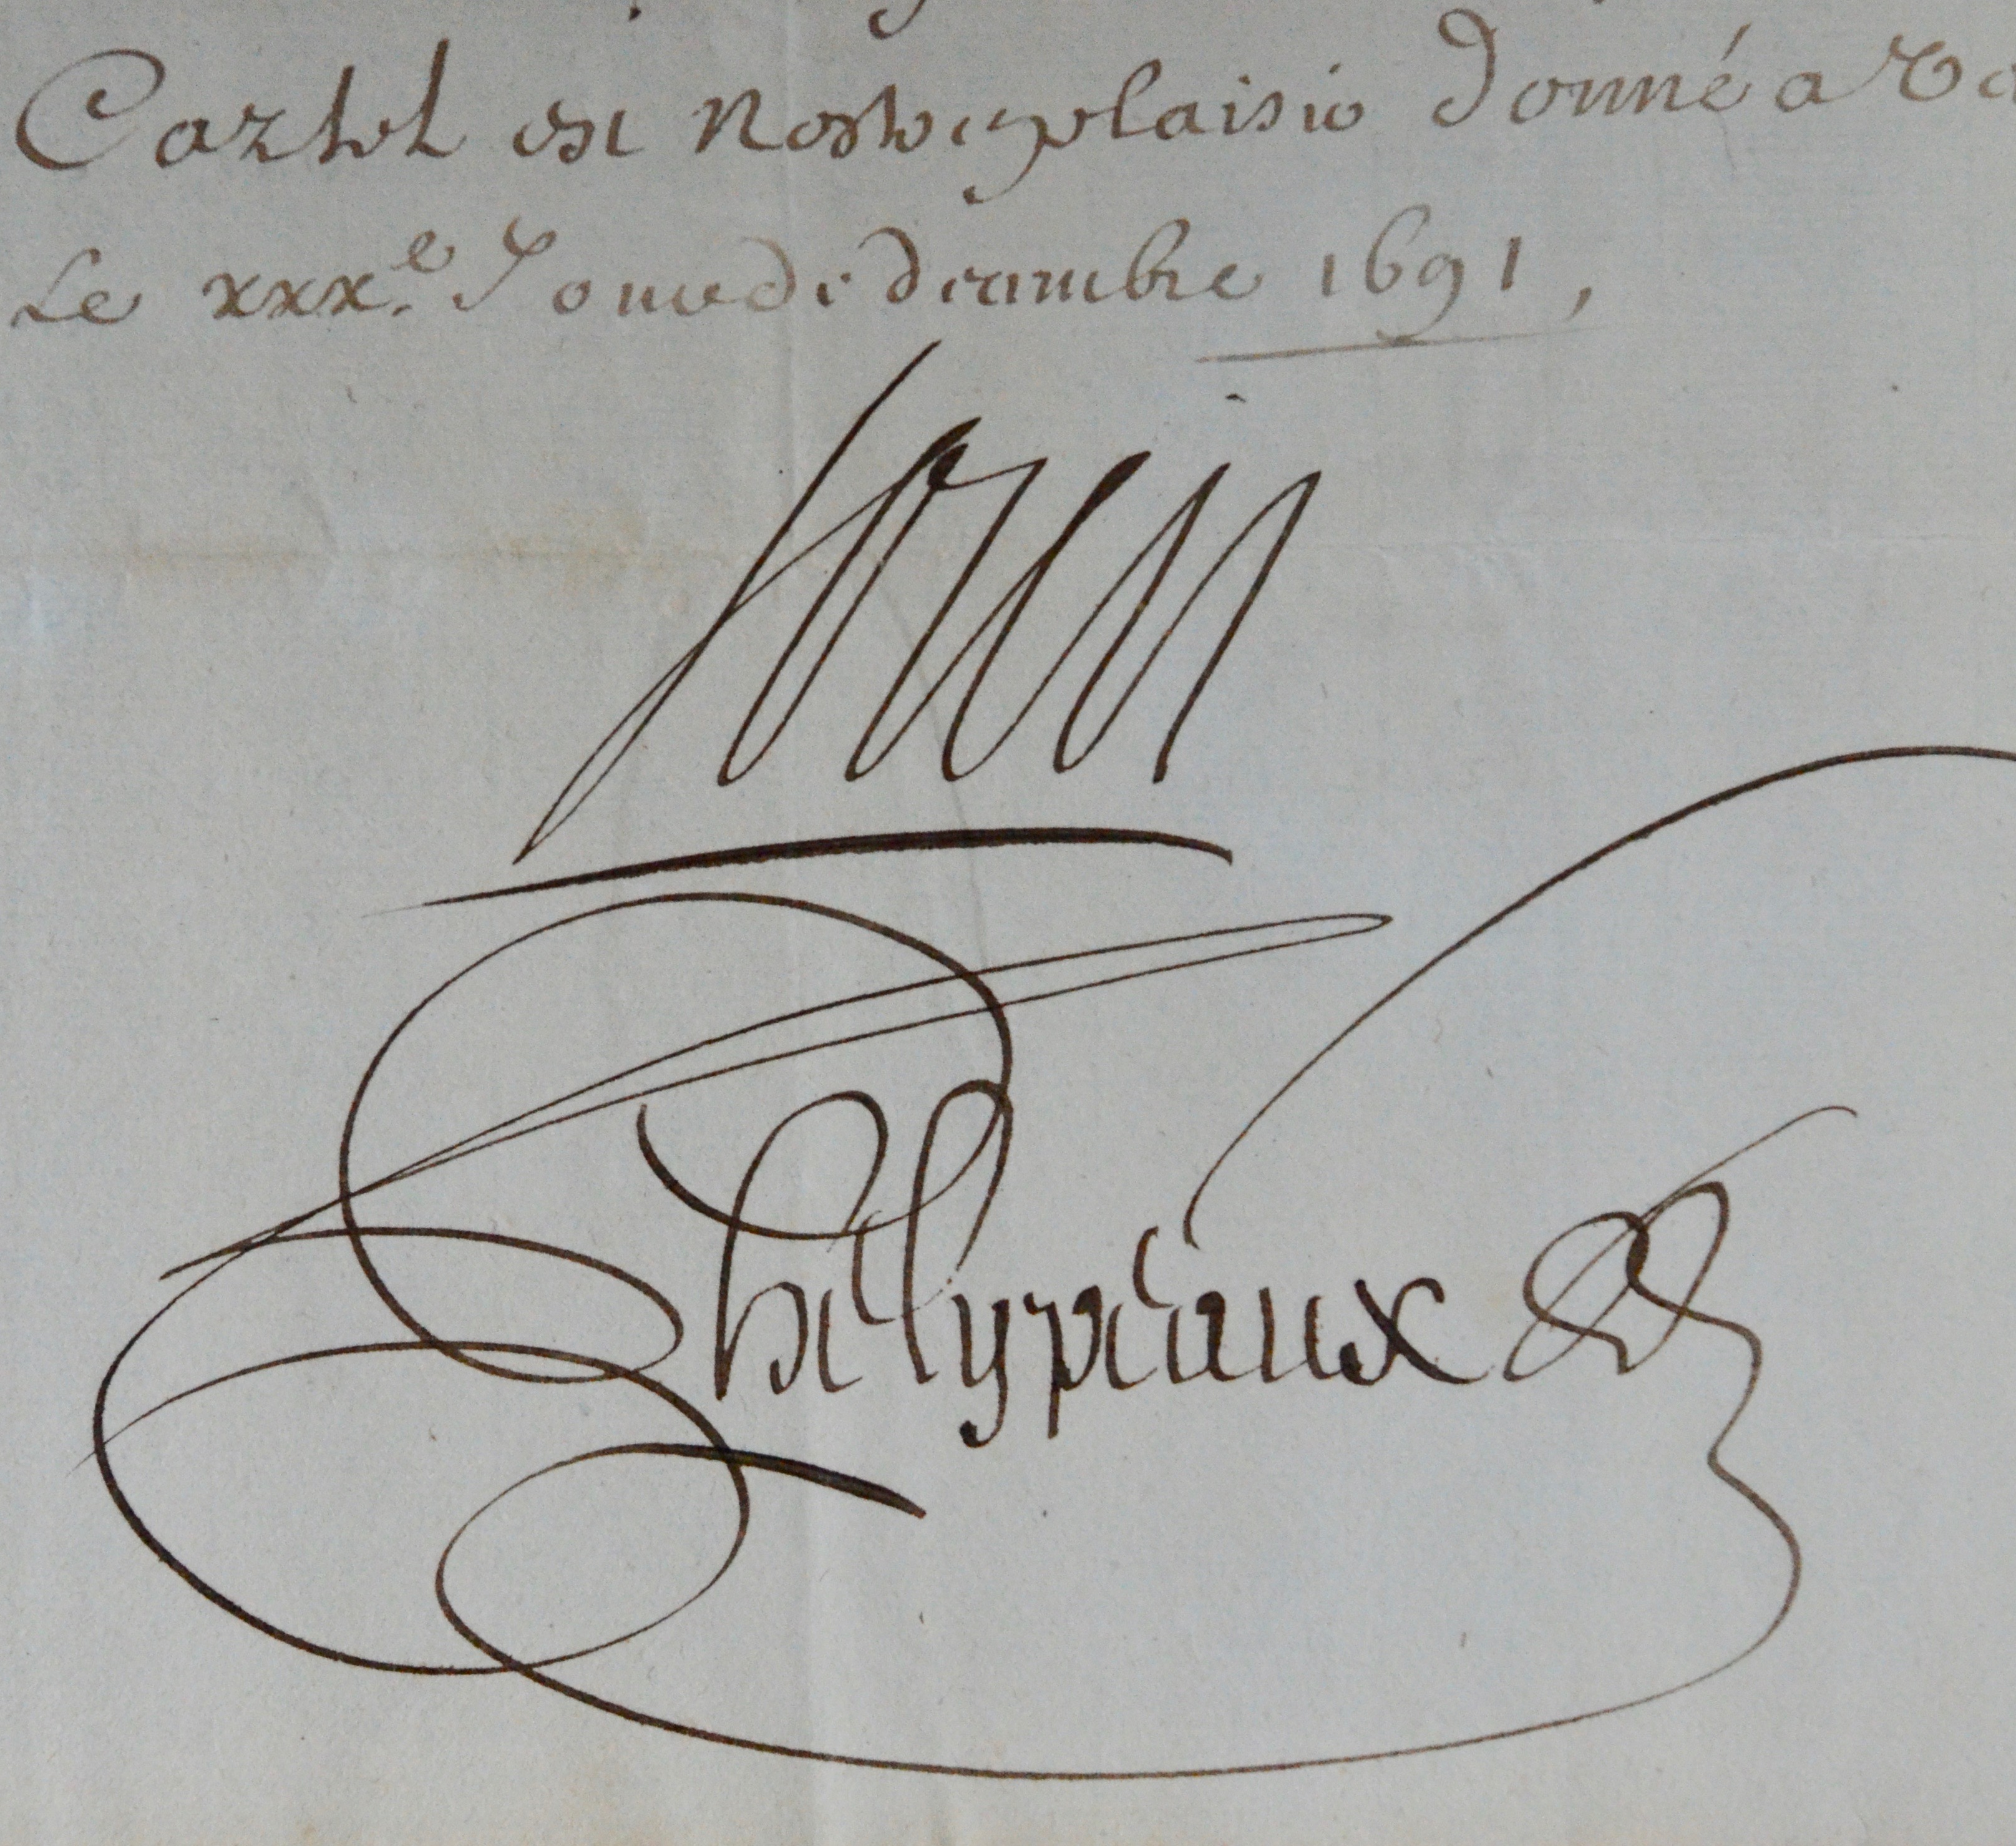 Car tel est Nostre plaisir Donné a
Le xxx.e Jour de decembre 1691,
Louis
Phelypeaux